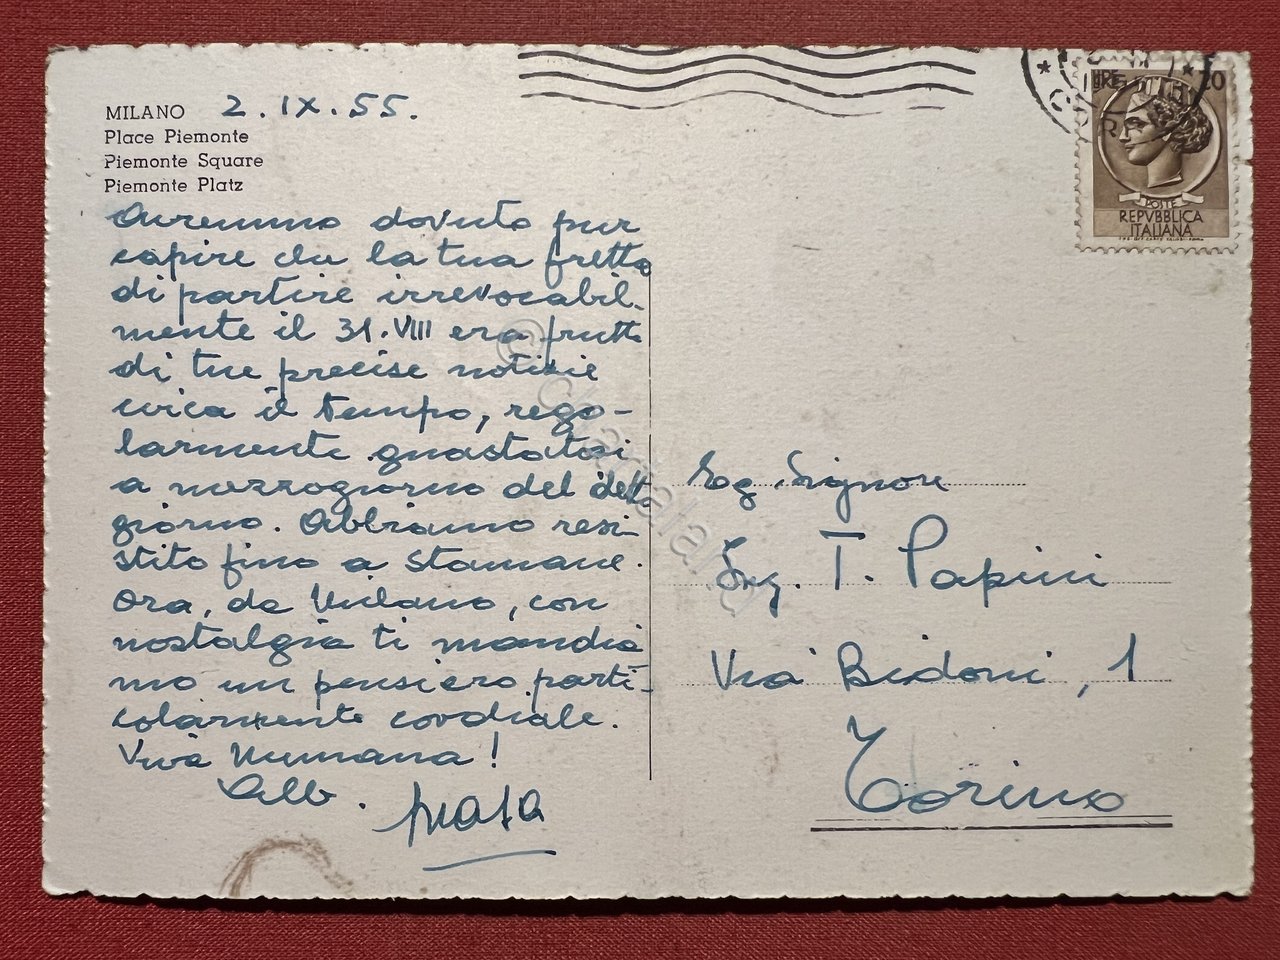 MILANO 2.IX.55.
Place Piemonte
Piemonte Square
Piemonte Platz
Avremmo dovuto pur
capire che la tua fretta
di partire irrevocabil-
mente il 31.VIII era frutto
di tue precise notizie
circa il tempo, rego-
larmente guastatosi
a mezzogiorno del detto
giorno. Abbiamo resi-
stito fino a stamane.
Ora, da Milano, con
nostalgia ti mandia
mo un pensiero parti-
colarmente cordiale.
Viva Numana!
LIRE 20
POSTE
REPVBBLICA
ITALIANA
Eg. Signore
Ing. T. Papini
Via Bidoni, 1
Torino
© cartaland